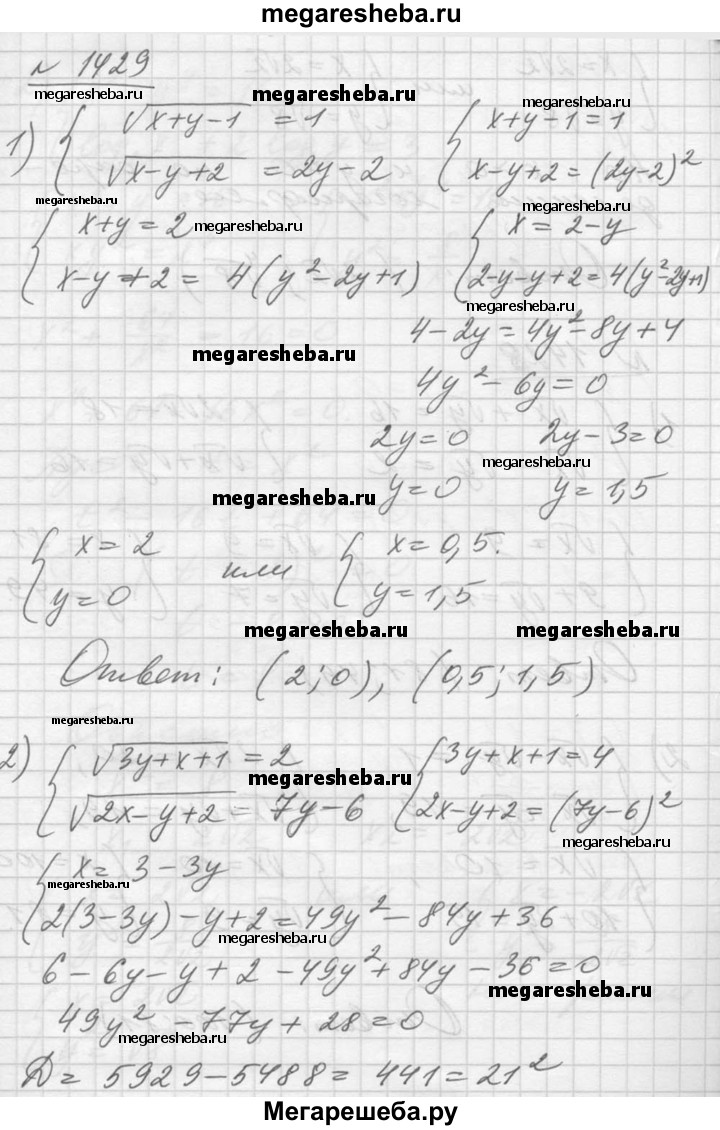 megaresheba.ru
№ 1429
megaresheba.ru
megaresheba.ru
1) { √(x+y-1) = 1 { x+y-1=1
√(x-y+2) = 2y-2 x-y+2=(2y-2)²
megaresheba.ru
megaresheba.ru
{ x+y=2 { x=2-y
megaresheba.ru
x-y+2= 4(y²-2y+1) 2-y-y+2=4(y²-2y+1)
4-2y=4y²-8y+4
megaresheba.ru
4y²-6y=0
2y=0 2y-3=0
megaresheba.ru
y=0 y=1,5
megaresheba.ru
{ x=2 или { x=0,5.
y=0 y=1,5
megaresheba.ru megaresheba.ru
Ответ: (2;0), (0,5;1,5)
megaresheba.ru
2) { √(3y+x+1)=2 { 3y+x+1=4
megaresheba.ru
√(2x-y+2)=7y-6 2x-y+2=(7y-6)²
megaresheba.ru
{ x=3-3y
megaresheba.ru
2(3-3y)-y+2=49y²-84y+36
megaresheba.ru
6-6y-y+2-49y²+84y-36=0
megaresheba.ru
49y²-77y+28=0
megaresheba.ru
D= 5929-5488= 441=21²
Мегарешеба.ру